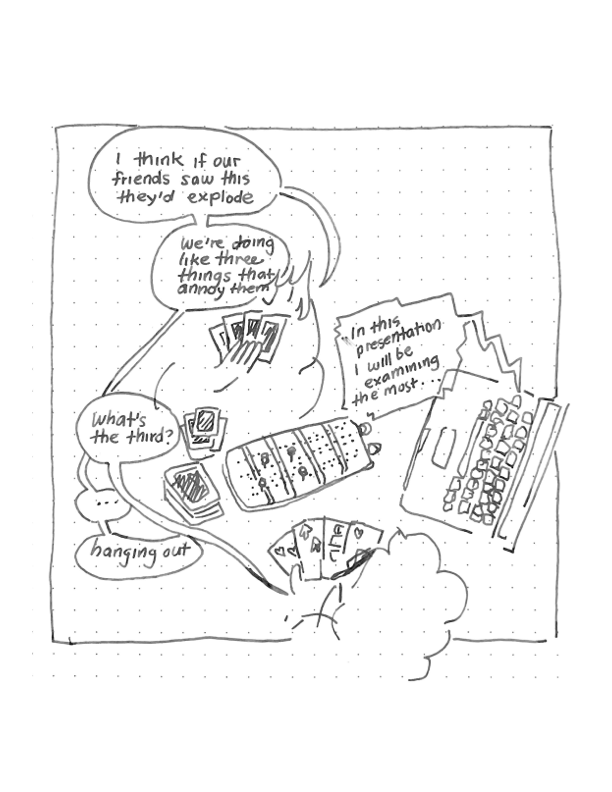 I think if our
friends saw this
they'd explode
we're doing
like three
things that
annoy them
In this
presentation
I will be
examining
the most...
What's
the third?
...
hanging out